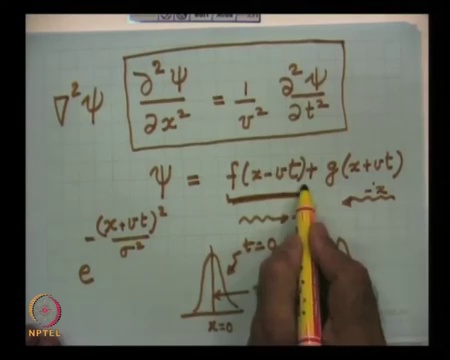 ∇²ψ ∂²ψ/∂x² = 1/v² ∂²ψ/∂t²
ψ = f(x-vt) + g(x+vt)
-x
e^{-(x+vt)²/σ²}
t=0
x=0
NPTEL